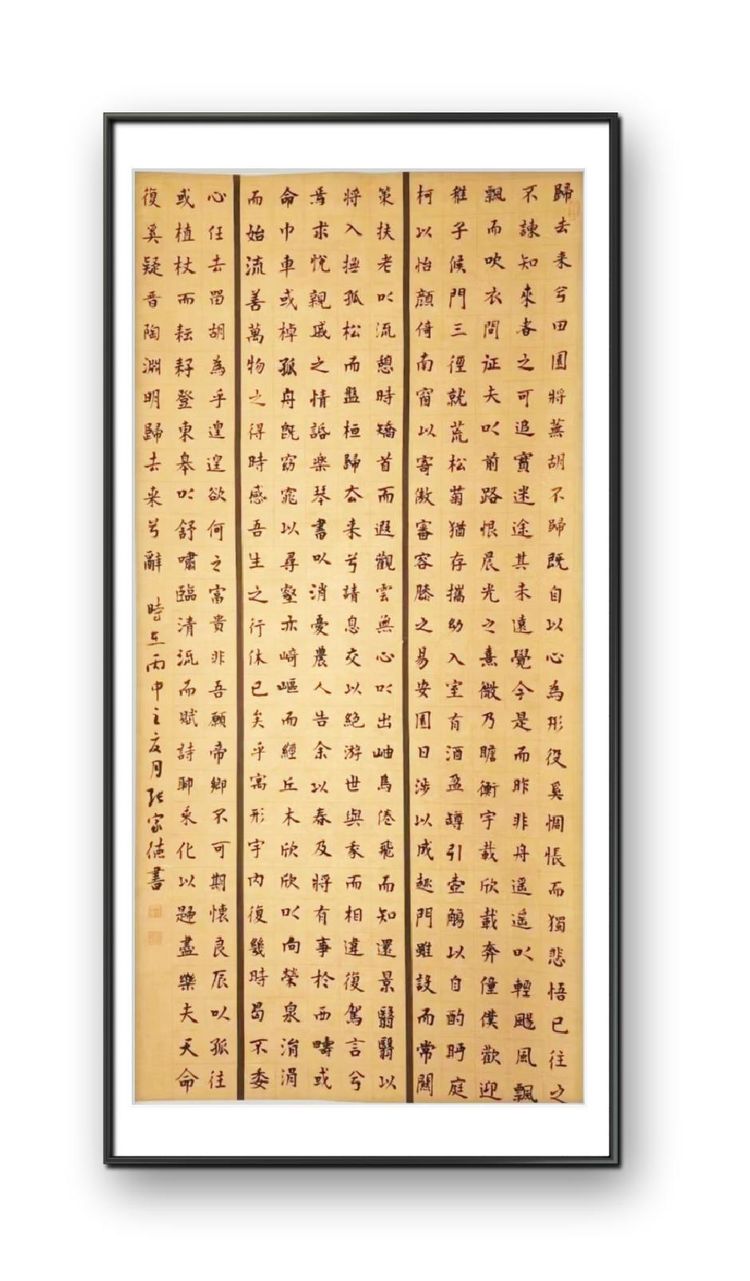 歸去来兮田園將蕪胡不歸既自以心為形役奚惆悵而獨悲悟已往之
不諫知來者之可追實迷途其未遠覺今是而昨非舟遥遥以輕颺風飄
飄而吹衣問征夫以前路恨晨光之熹微乃瞻衡宇載欣載奔僮僕歡迎
稚子候門三徑就荒松菊猶存攜幼入室有酒盈罇引壺觴以自酌眄庭
柯以怡顔倚南窗以寄傲審容膝之易安園日涉以成趣門雖設而常關
策扶老以流憩時矯首而遐觀雲無心以出岫鳥倦飛而知還景翳翳以
將入撫孤松而盤桓歸去来兮請息交以絕游世與我而相違復駕言兮
焉求悅親戚之情話樂琴書以消憂農人告余以春及將有事於西疇或
命巾車或棹孤舟既窈窕以尋壑亦崎嶇而經丘木欣欣以向榮泉涓涓
而始流善萬物之得時感吾生之行休已矣乎寓形宇內復幾時曷不委
心任去留胡為乎遑遑欲何之富貴非吾願帝鄉不可期懷良辰以孤往
或植杖而耘耔登東皋以舒嘯臨清流而賦詩聊乘化以歸盡樂夫天命
復奚疑晋陶淵明歸去来兮辭 時在丙申之夏月張家德書